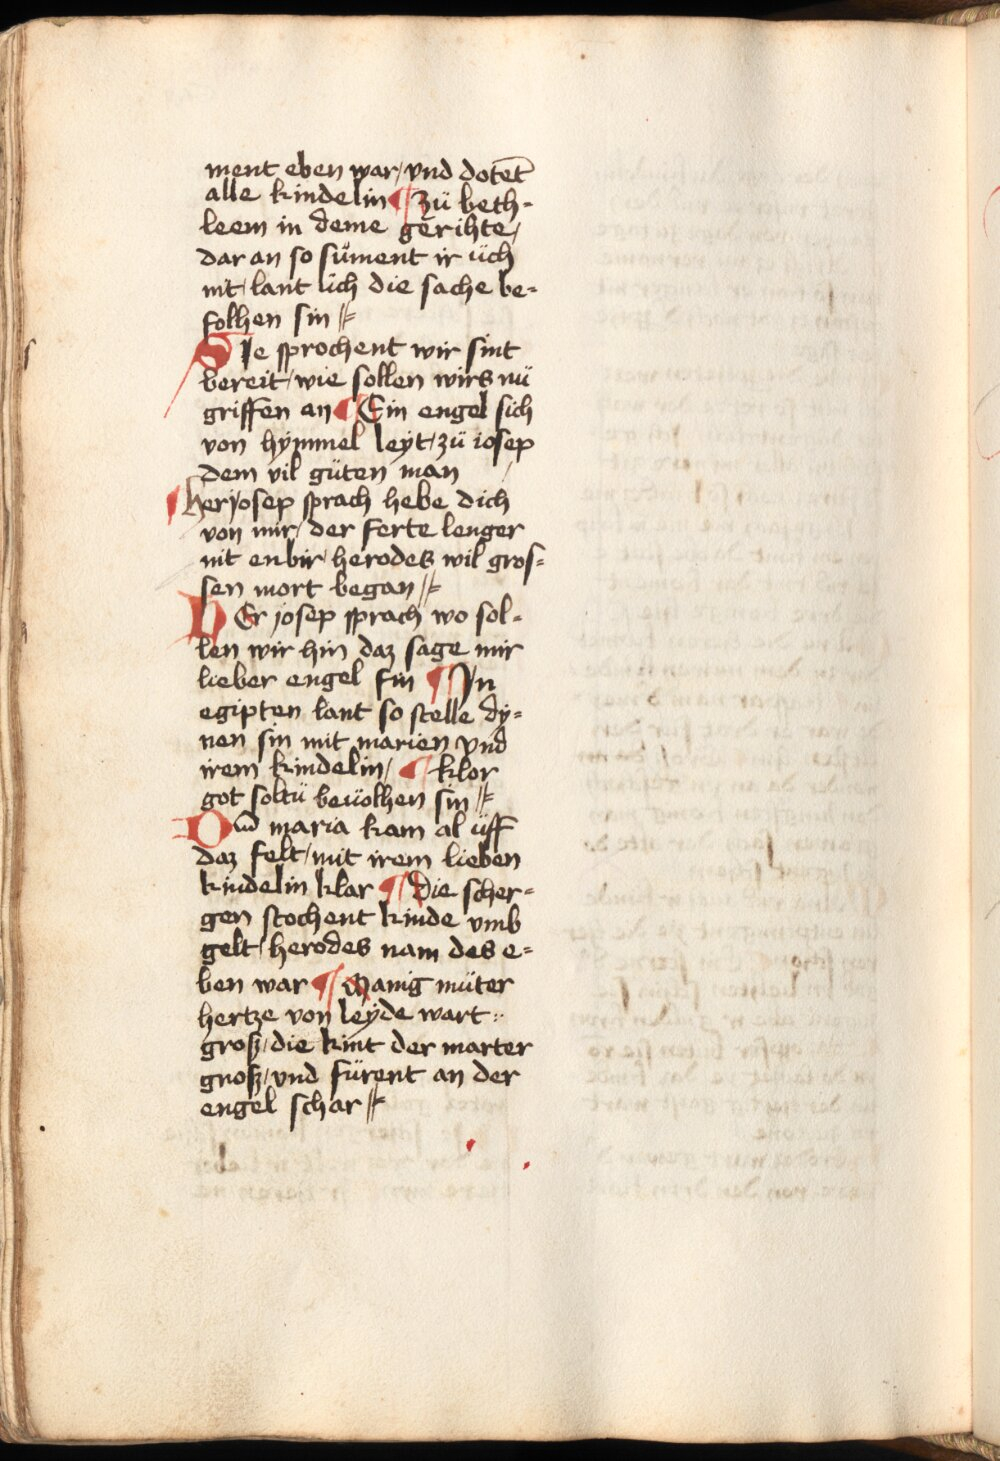 ment eben war / vnd dotet̄
alle kindelin ¶ Zü beth-
leem in deme gerihte /
dar an so sument ir üch
nit / lant üch die sache be-
folhen sin //
SIe sprochent wir sint
bereit / wie sollen wirs nü
griffen an ¶ Ein engel sich
von hÿmmel leÿt / zü iosep
dem vil güten man /
¶ her iosep sprach hebe dich
von mir / der ferte lenger
nit enbir / herodes wil gros-
sen mort began //
HEr josep sprach wo sol-
len wir hin daz sage mir
lieber engel fin ¶ Jn
egipten lant so stelle dÿ-
nen sin mit marien vnd
irem kindelin / ¶ klor
got soltü beuolhen sin //
Do maria kam al üff
daz felt / mit irem lieben
kindelin klar ¶ Die scher-
gen stochent kinde vmb
gelt / herodes nam des e-
ben war ¶ Manig müter
hertze von leÿde wart
grosz / die kint der marter
gnosz / vnd fürent an der
engel schar //